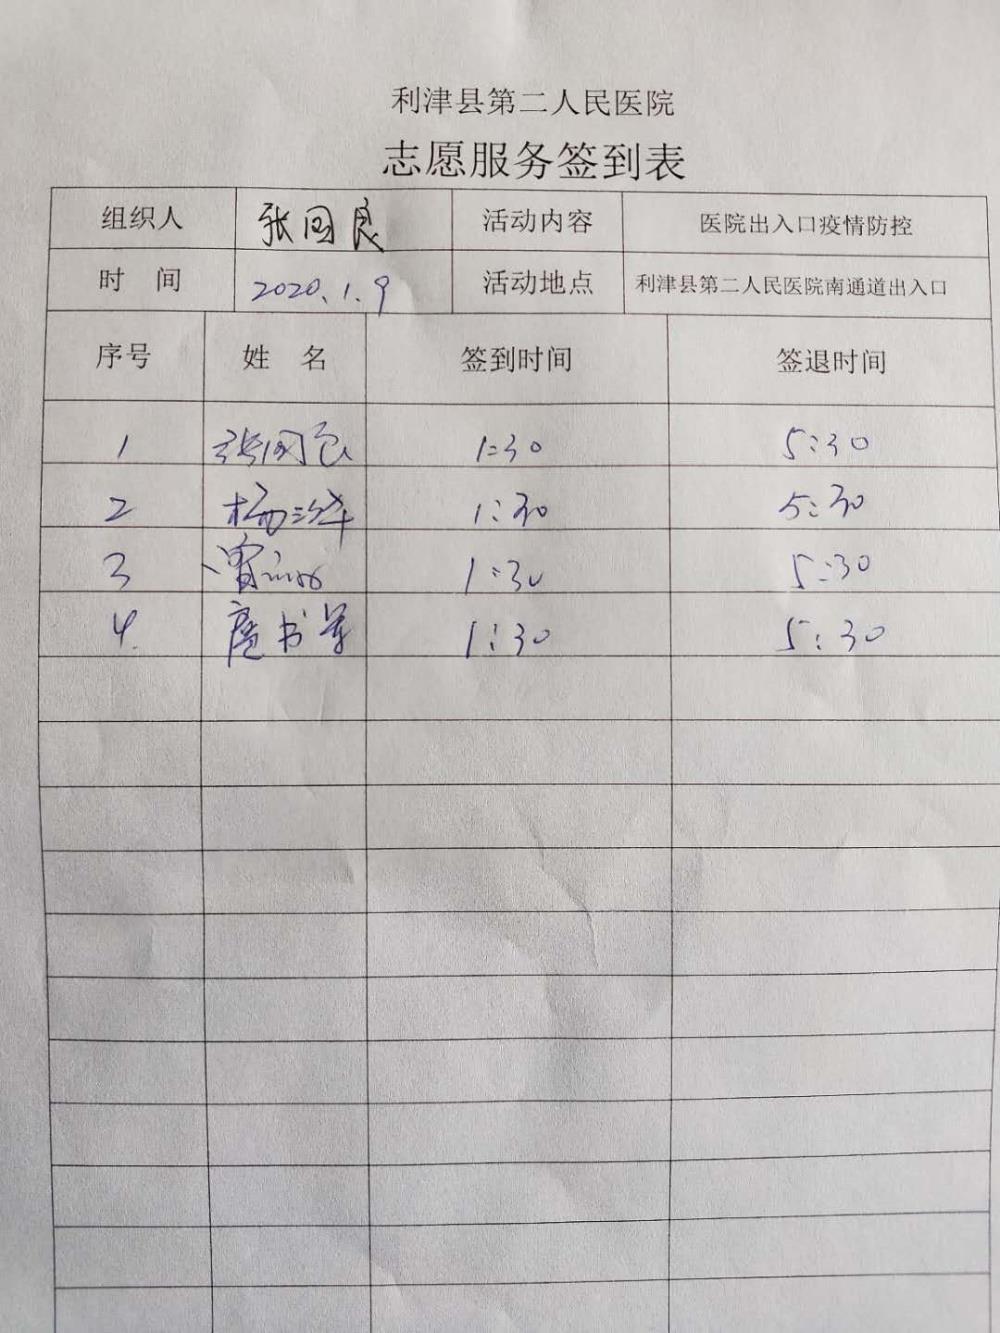 利津县第二人民医院
志愿服务签到表
组织人 张国良 活动内容 医院出入口疫情防控
时 间 2020.1.9 活动地点 利津县第二人民医院南通道出入口
序号 姓 名 签到时间 签退时间
1 张国良 1:30 5:30
2 杨 1:30 5:30
3 1:30 5:30
4 书 1:30 5:30